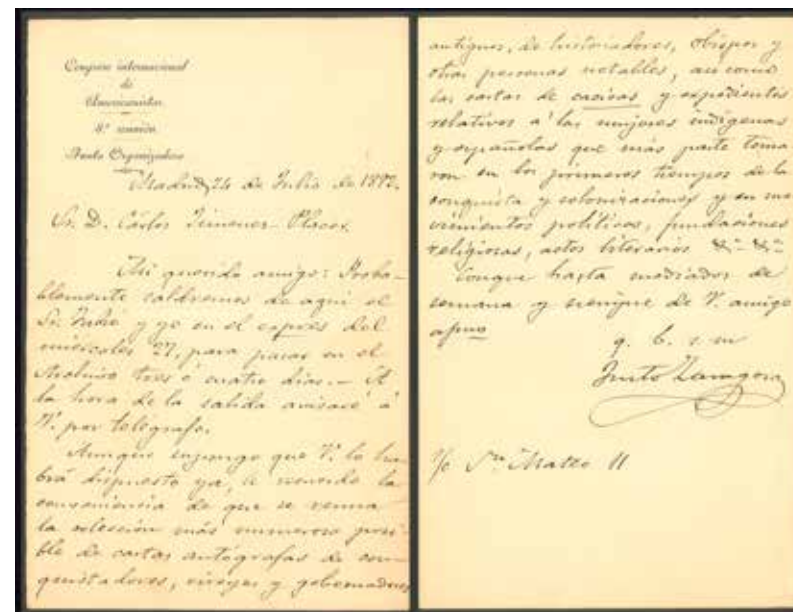 Congreso internacional
de
Americanistas
8ª reunión
Junta Organizadora
Madrid, 24 de Julio de 1892.
Sr. D. Cárlos Jimenez-Placer.
Mi querido amigo: Proba-
blemente saldremos de aquí el
Sr. Fabié y yo en el expres del
miércoles 27, para pasar en el
Archivo tres ó cuatro dias. — A
la hora de la salida avisaré á
V. por telégrafo.
Aunque supongo que V. lo ha-
brá dispuesto ya, le recuerdo la
conveniencia de que se reuna
la colección más numerosa posi-
ble de cartas autógrafas de con-
quistadores, vireyes y gobernadores
antiguos, de historiadores, obispos y
otras personas notables, asi como
las cartas de cacicas y expedientes
relativos á las mujeres indígenas
y españolas que más parte toma
ron en los primeros tiempos de la
conquista y colonizaciones y en mo
vimientos políticos, fundaciones
religiosas, actos literarios &ª &ª
Conque hasta mediados de
semana y siempre de V. amigo
afmo
q. b. s. m
Justo Zaragoza
Sn Mateo 11